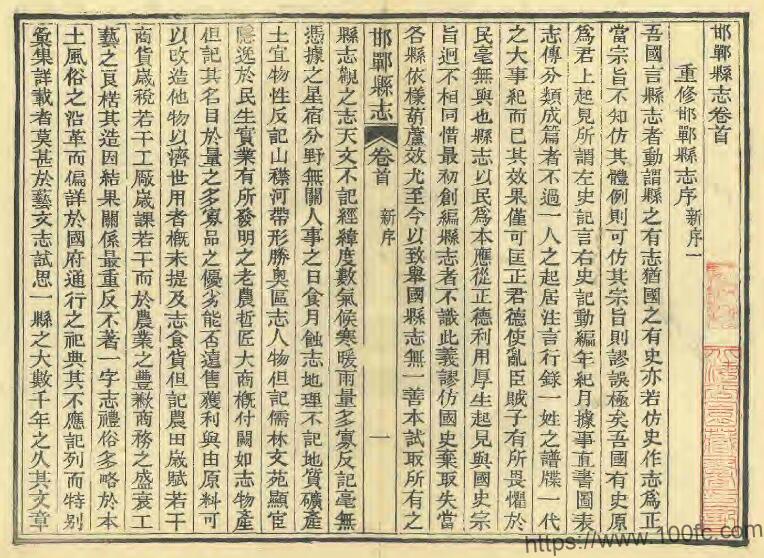 邯鄲縣志卷首
重修邯鄲縣志序 新序一
吾國言縣志者動謂縣之有志猶國之有史亦若仿史作志爲正
當宗旨不知仿其體例則可仿其宗旨則謬誤極矣吾國有史原
爲君上起見所謂左史記言右史記動編年紀月據事直書圖表
志傳分類成篇者不過一人之起居注言行錄一姓之譜牒一代
之大事紀而已其效果僅可匡正君德使亂臣賊子有所畏懼於
民毫無與也縣志以民爲本應從正德利用厚生起見與國史宗
旨迥不相同惜最初創編縣志者不識此義謬仿國史棄取失當
各縣依樣葫蘆效尤至今以致舉國縣志無一善本試取所有之
邯鄲縣志 卷首 新序 一
縣志觀之志天文不記經緯度數氣候寒暖雨量多寡反記毫無
憑據之星宿分野無關人事之日食月蝕志地理不記地質礦產
土宜物性反記山襟河帶形勝奧區志人物但記儒林文苑顯宦
隱逸於民生實業有所發明之老農哲匠大商概付闕如志物產
但記其名目於量之多寡品之優劣能否遠售獲利與由原料可
以改造他物以濟世用者概未提及志食貨但記農田歲賦若干
商貨歲稅若干工厰歲課若干而於農業之豐歉商務之盛衰工
藝之良楛其造因結果關係最重反不著一字志禮俗多略於本
土風俗之沿革而偏詳於國府通行之祀典其不應記列而特別
彙集詳載者莫甚於藝文志試思一縣之大數千年之久其文章
https://www.100fc.com